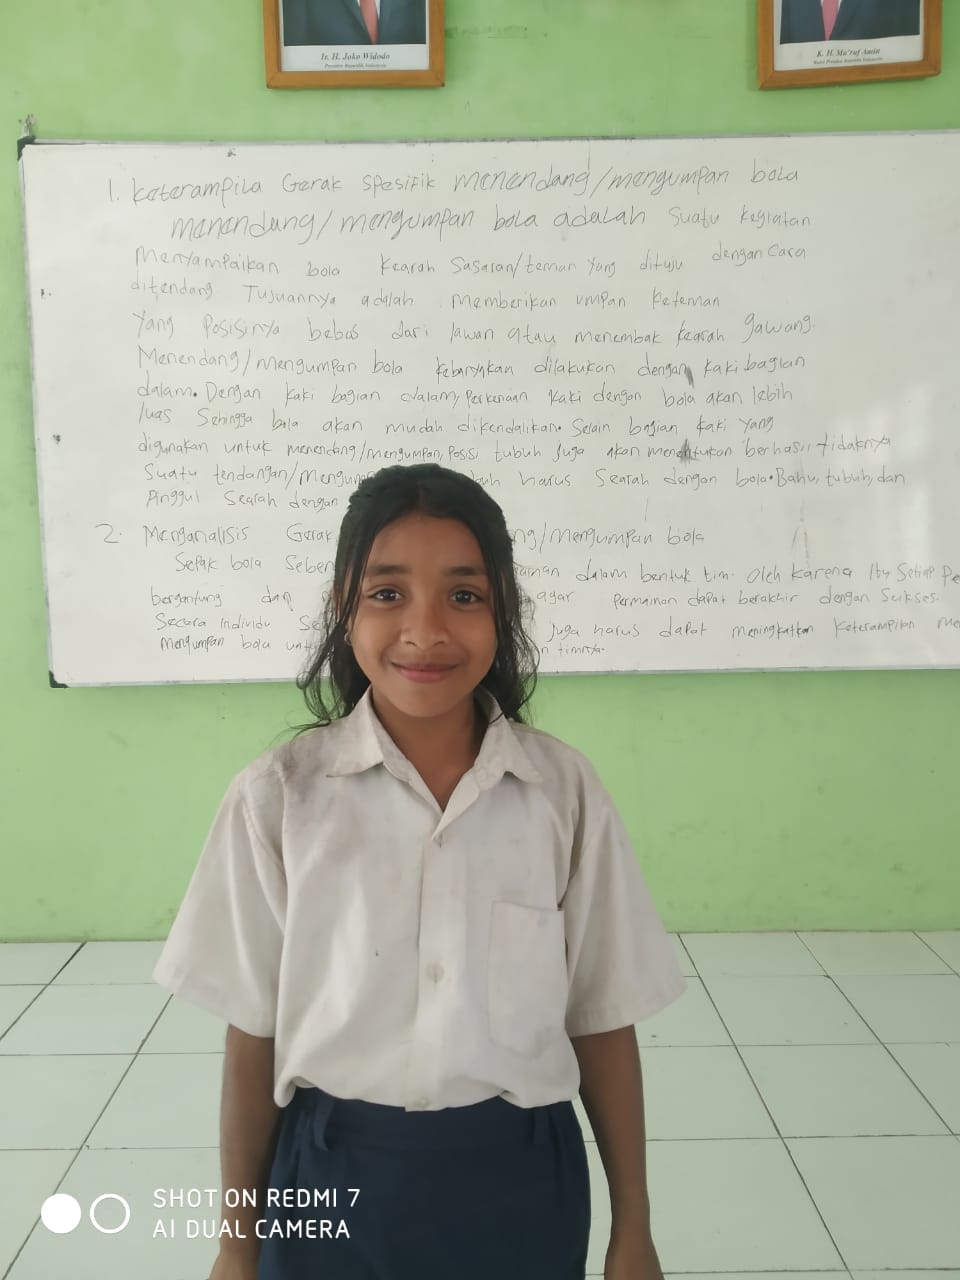 Ir. H. Joko Widodo
Presiden Republik Indonesia
K. H. Ma'ruf Amin
Wakil Presiden Republik Indonesia
1. Keterampila Gerak Spesifik Menendang/mengumpan bola
menendang/mengumpan bola adalah suatu kegiatan
Menyampaikan bola Kearah Sasaran/teman yang dituju dengan Cara
ditendang Tujuannya adalah Memberikan umpan keteman
Yang Posisinya bebas dari lawan atau menembak kearah gawang.
Menendang/mengumpan bola kebanyakan dilakukan dengan kaki bagian
dalam. Dengan kaki bagian dalam, Perkenaan kaki dengan bola akan lebih
luas Sehingga bola akan mudah dikendalikan. Selain bagian kaki Yang
digunakan untuk menendang/mengumpan, Posisi tubuh Juga akan menentukan berhasil tidaknya
Suatu tendangan/Mengum harus Searah dengan bola. Bahu, tubuh, dan
Pinggul Searah dengan
2. Menganalisis Gerak ng/mengumpan bola
Sepak bola dalam bentuk tim. Oleh karena Itu Setiap Pe
bergantung dan agar Permainan dapat berakhir dengan Sukses.
Secara Individu Juga harus dapat meningkatkan keterampilan me
Mengumpan bola timnya.
SHOT ON REDMI 7
AI DUAL CAMERA